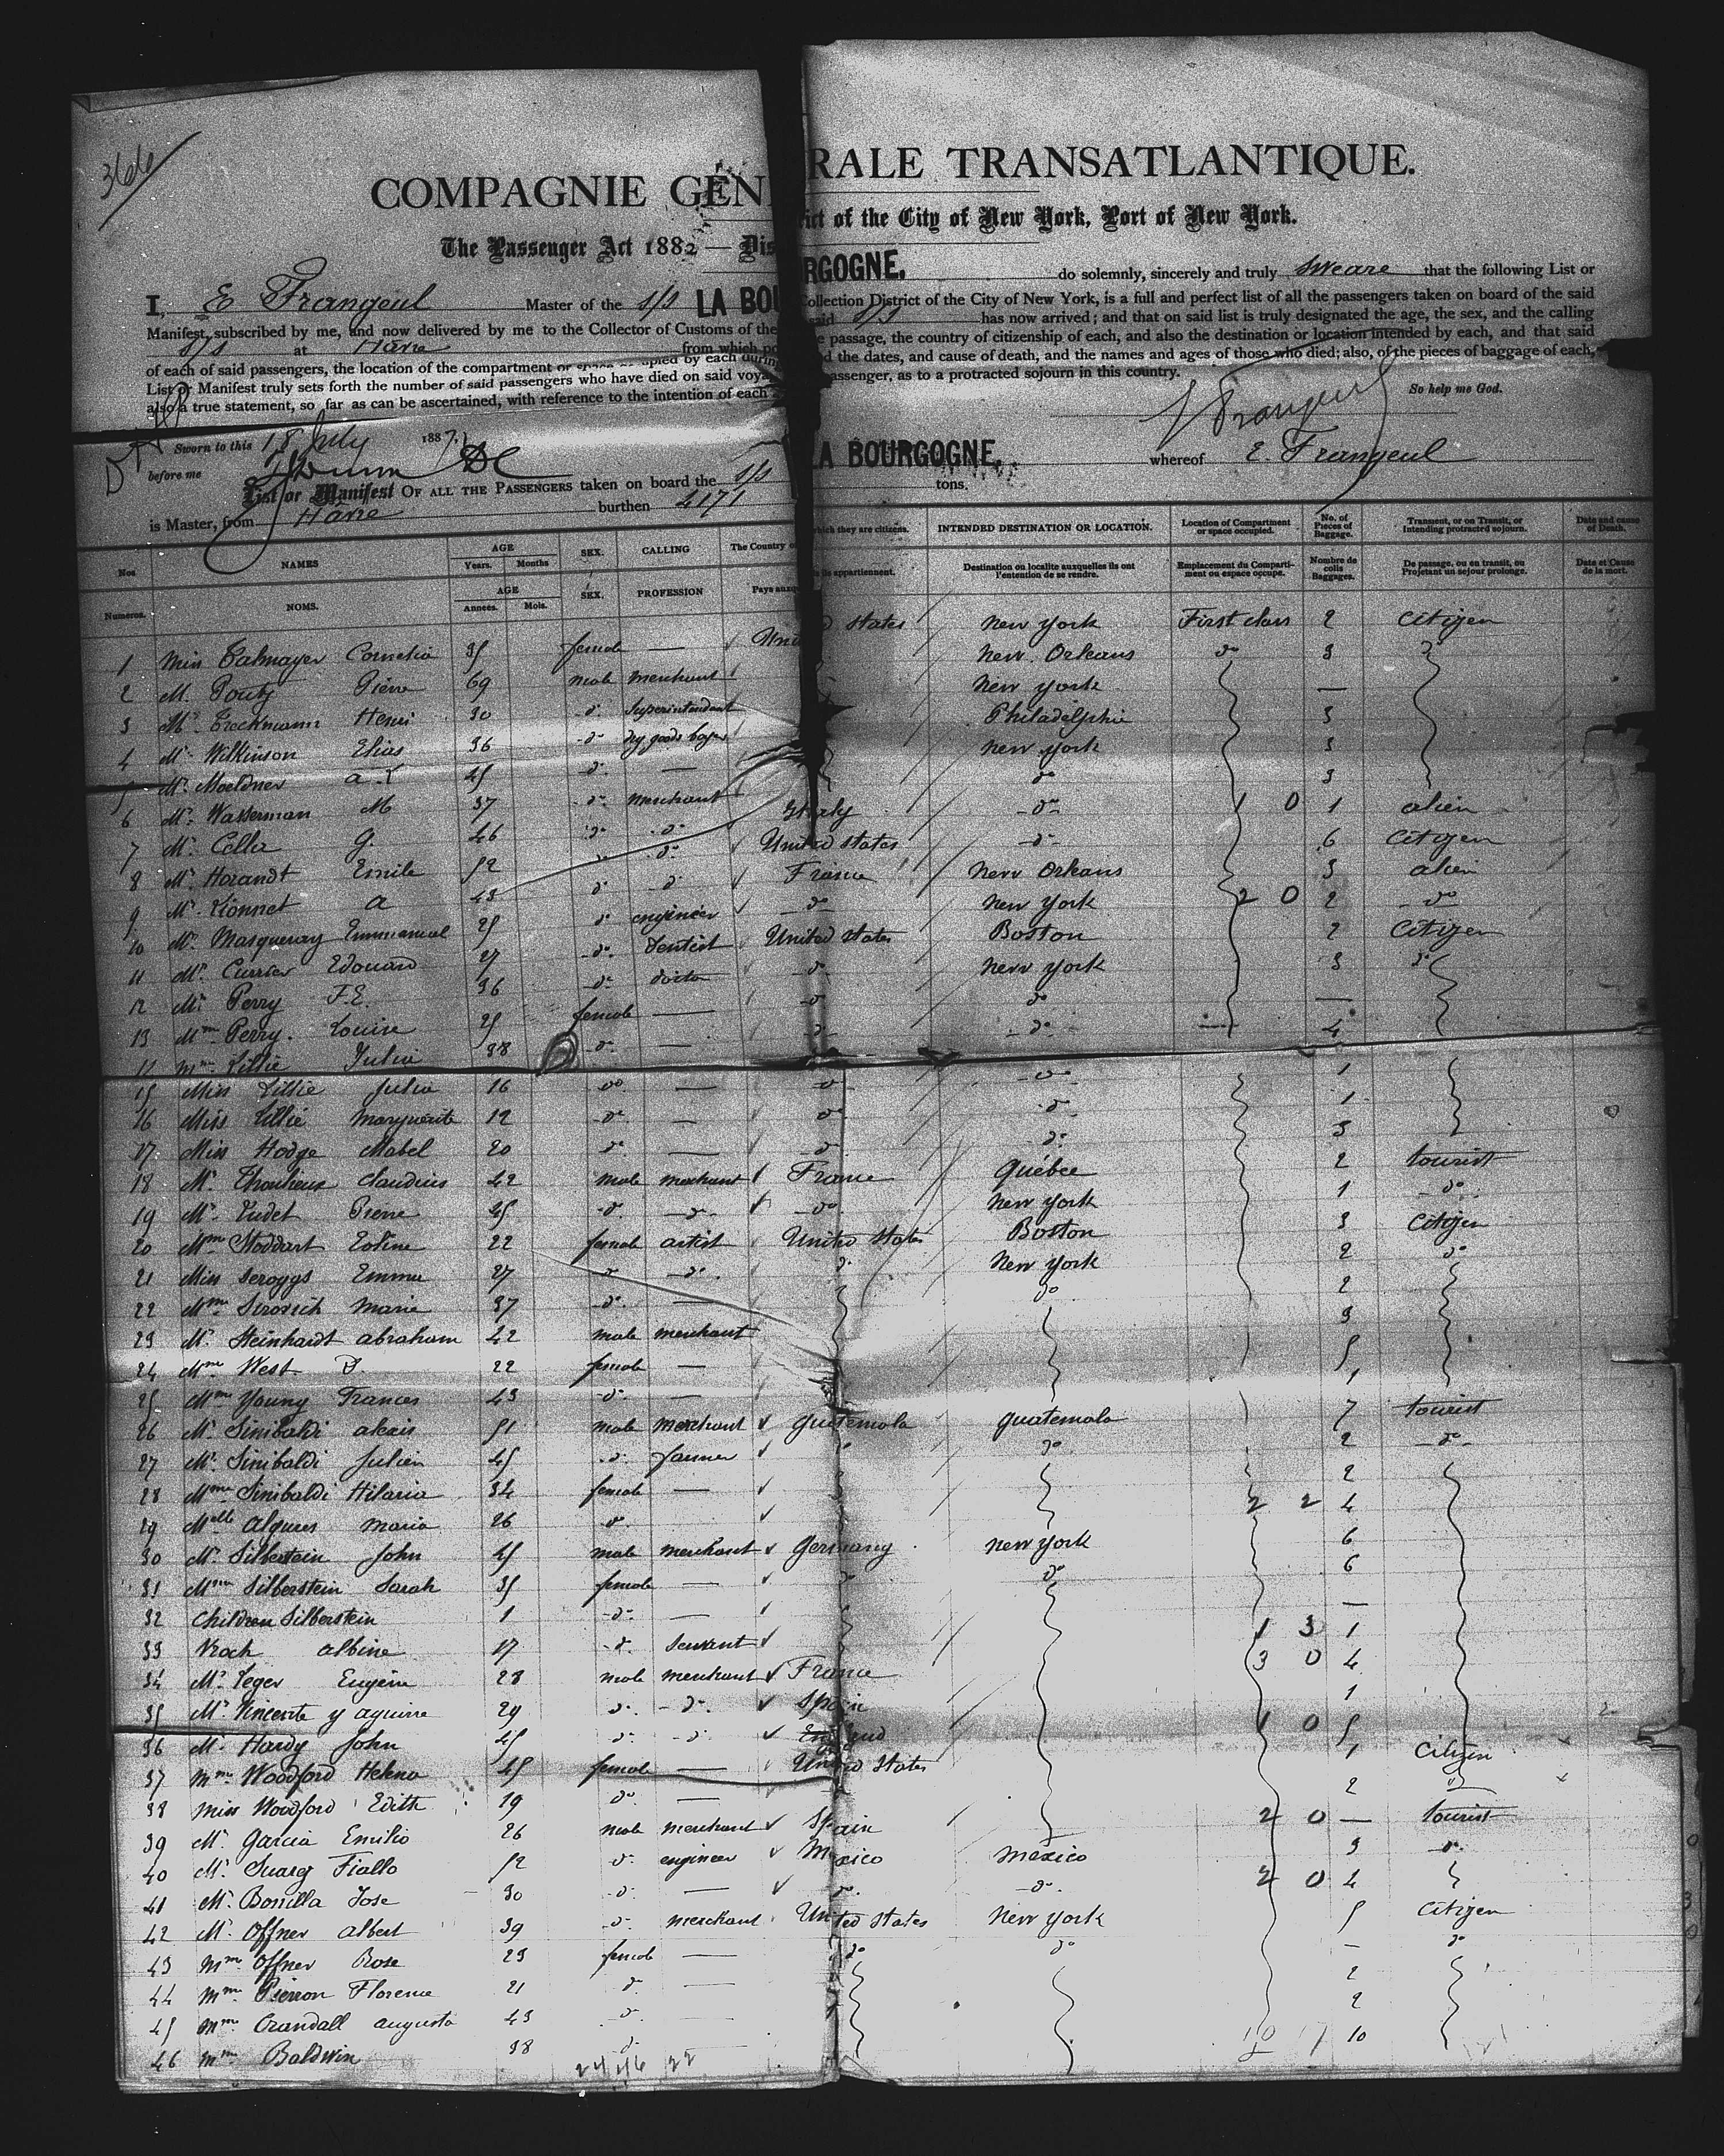 366
COMPAGNIE GÉNÉRALE TRANSATLANTIQUE.
The Passenger Act 1882 — District of the City of New York, Port of New York.
I, E Frangeul Master of the s/s LA BOURGOGNE, do solemnly, sincerely and truly sweare that the following List or
Manifest subscribed by me, and now delivered by me to the Collector of Customs of the Collection District of the City of New York, is a full and perfect list of all the passengers taken on board of the said
s/s at Havre from which said s/s has now arrived; and that on said list is truly designated the age, the sex, and the calling
of each of said passengers, the location of the compartment or space occupied by each during passage, the country of citizenship of each, and also the destination or location intended by each, and that said
List or Manifest truly sets forth the number of said passengers who have died on said voyage and the dates, and cause of death, and the names and ages of those who died; also, of the pieces of baggage of each,
also a true statement, so far as can be ascertained, with reference to the intention of each passenger, as to a protracted sojourn in this country.
So help me God.
Sworn to this 18 July 1887
before me
E. Frangeul
List or Manifest OF ALL THE PASSENGERS taken on board the s/s LA BOURGOGNE, whereof E. Frangeul
is Master, from Havre burthen 4171 tons.
Nos NAMES AGE Years. Months SEX. CALLING The Country which they are citizens. INTENDED DESTINATION OR LOCATION. Location of Compartment or space occupied. No. of Pieces of Baggage. Transient, or on Transit, or Intending protracted sojourn. Date and cause of Death.
Numeros. NOMS. AGE Années. Mois. SEX. PROFESSION Pays ils appartiennent. Destination ou localite auxquelles ils ont l'entention de se rendre. Emplacement du Comparti-ment ou espace occupe. Nombre de colis Baggages. De passage, ou en transit, ou Projetant un sejour prolonge. Date et Cause de la mort.
1 Miss Calmayer Cornelia 35 female — United States New York First class 2 Citizen
2 M. Pierre 69 male merchant New Orleans do 3 do
3 Mr Henri 30 do Superintendant New York —
4 Mr Wilkinson Elias 36 do dry goods Philadelphie 3
5 Mr Moeldner 45 do — New York 3
6 Mr Wasserman M 37 do merchant do 3
7 Mr Cella G. 46 do do Italy do 1 0 1 alien
8 Mr Horandt Emile 52 do United States do 6 Citizen
9 Mr Lionnet A 43 do do France New Orleans 3 alien
10 Mr Masqueray Emmanuel 25 do engineer do New York 2 0 2 do
11 Mr Currier Edouard 27 do Dentist United States Boston 2 Citizen
12 Mr Perry F.E. 36 do doctor do New York 3 do
13 Mme Perry. Louise 25 female — do do —
14 Mme Lillie Julia 38 do — do do 4
15 Miss Lillie Julia 16 do — do do 1
16 Miss Lillie Marguerite 12 do — do do 1
17 Miss Hodge Mabel 20 do — do do 3
18 Mr Claudius 42 male merchant France Québec 2 tourist
19 Mr Pierre 45 do do do New York 1 do
20 Mme Stoddart 22 female artist United States Boston 3 Citizen
21 Miss Scroggs Emma 27 do do do New York 2 do
22 Mme Sirovich Marie 37 do — do 2
23 Mr Steinhardt Abraham 42 male merchant 3
24 Mme West 22 female — 5
25 Mme Young Frances 43 do — 1
26 Mr Sinibaldi Alexis 51 male merchant Guatemala Guatemala 7 tourist
27 Mr Sinibaldi Julien 45 do farmer do do 2 do
28 Mme Sinibaldi Hilaria 34 female — 2
29 Melle Maria 26 do 2 2 4
30 Mr Silberstein John 45 male merchant Germany New York 6
31 Mme Silberstein Sarah 35 female — do do 6
32 Children Silberstein 1 do — —
33 Albine 17 do servant 1 3 1
34 Mr Leger Eugène 28 male merchant France 3 0 4
35 Mr Vincente y Aguirre 29 do do Spain 1
36 Mr Hardy John 45 do do England 1 0 5
37 Mme Woodford Helena 45 female — United States 1 Citizen
38 Miss Woodford Edith 19 do — 2
39 Mr Garcia Emilio 26 male merchant Spain 2 0 — tourist
40 Mr Suarez Fiallo 52 do engineer Mexico Mexico 3 do
41 Mr Bonilla Jose 30 do — do do 2 0 4
42 Mr Offner Albert 39 do merchant United States New York 5 Citizen
43 Mme Offner Rose 23 female — do do — do
44 Mme Pierron Florence 21 do — 2
45 Mme Crandall Augusta 43 do — 2
46 Mme Baldwin 38 do 10